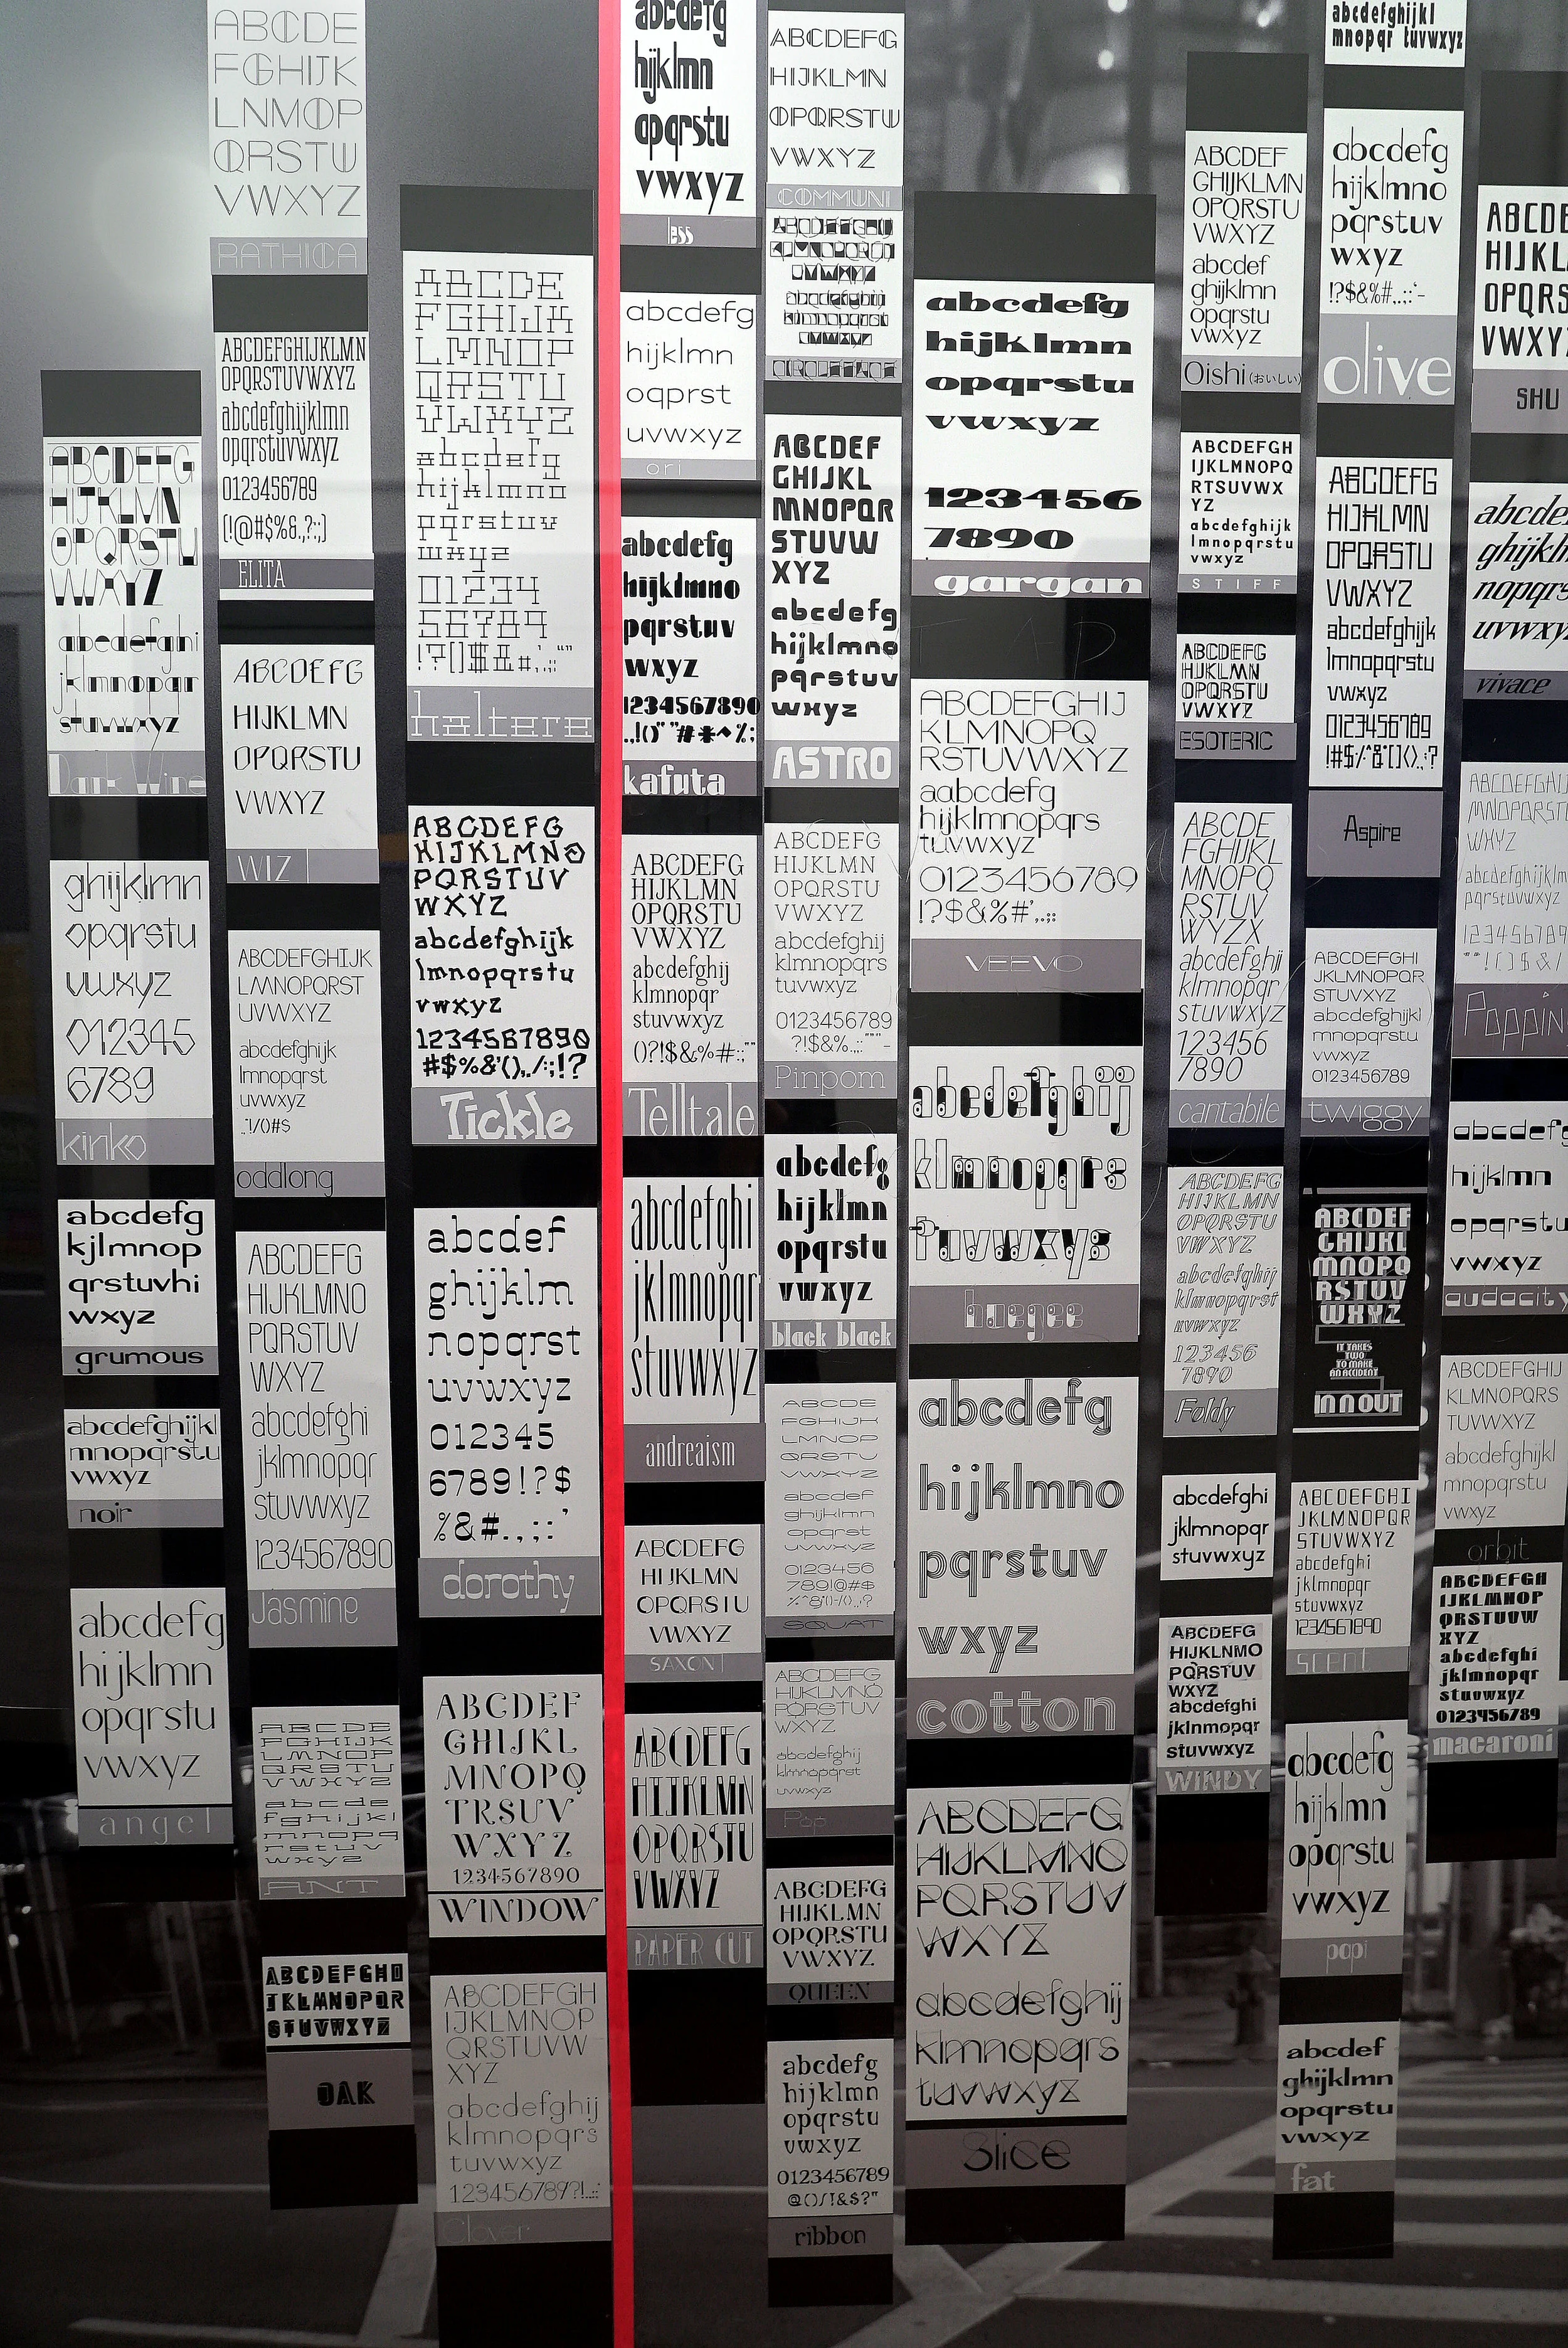 ABCDE
FGHIJK
LNMOP
QRSTU
VWXYZ
RATHICA
ABCDEFGHIJKLMN
OPQRSTUVWXYZ
abcdefghijklmn
opqrstuvwxyz
0123456789
(!@#$%&.,?:;)
ELITA
ABCDEFG
HIJKLMN
OPQRSTU
VWXYZ
WIZ
ABCDEFGHIJK
LMNOPQRST
UVWXYZ
abcdefghijk
lmnopqrst
uvwxyz
oddlong
ABCDEFG
HIJKLMNO
PQRSTUV
WXYZ
abcdefghi
jklmnopqr
stuvwxyz
1234567890
Jasmine
ABCDE
FGHIJK
LMNOP
QRSTU
VWXYZ
abcde
fghijkl
mnopq
rstuv
wxyz
ANT
ABCDEFGHI
JKLMNOPQR
STUVWXYZ
OAK
ABCDEFG
HIJKLMN
OPQRSTU
VWXYZ
abcdefghi
jklmnopqr
stuvwxyz
Dark Wine
ghijklmn
opqrstu
vwxyz
012345
6789
kinko
abcdefg
kjlmnop
qrstuvhi
wxyz
grumous
abcdefghijkl
mnopqrstu
vwxyz
noir
abcdefg
hijklmn
opqrstu
vwxyz
angel
ABCDE
FGHIJK
LMNOP
QRSTU
VWXYZ
abcdefg
hijklmno
pqrstuv
wxyz
01234
56789
haltere
ABCDEFG
HIJKLMNO
PQRSTUV
WXYZ
abcdefghijk
lmnopqrstu
vwxyz
1234567890
#$%&'(),./:;!?
Tickle
abcdef
ghijklm
nopqrst
uvwxyz
012345
6789!?$
%&#.,;:'
dorothy
ABCDEF
GHIJKL
MNOPQ
TRSUV
WXYZ
1234567890
WINDOW
ABCDEFGH
IJKLMNOP
QRSTUVW
XYZ
abcdefghij
klmnopqrs
tuvwxyz
123456789?!..::
Clover
abcdefg
hijklmn
opqrstu
vwxyz
less
abcdefg
hijklmn
oqprst
uvwxyz
ori
abcdefg
hijklmno
pqrstuv
wxyz
1234567890
kafuta
ABCDEFG
HIJKLMN
OPQRSTU
VWXYZ
abcdefghij
klmnopqr
stuvwxyz
()?!$&%#:;""
Telltale
abcdefghi
jklmnopqr
stuvwxyz
andreaism
ABCDEFG
HIJKLMN
OPQRSTU
VWXYZ
SAXON
ABCDEFG
HIJKLMN
OPQRSTU
VWXYZ
PAPER CUT
ABCDEFG
HIJKLMN
OPQRSTU
VWXYZ
COMMUNI
ABCDEF
GHIJKL
MNOPQR
STUVW
XYZ
abcdefg
hijklmno
pqrstuv
wxyz
ASTRO
ABCDEFG
HIJKLMN
OPQRSTU
VWXYZ
abcdefghij
klmnopqrs
tuvwxyz
0123456789
Pinpom
abcdefg
hijklmn
opqrstu
vwxyz
black black
ABCDE
FGHIJK
LMNOP
QRSTU
VWXYZ
abcdef
ghijklmn
opqrst
uvwxyz
0123456
789!@#$
SQUAT
ABCDEFG
HIJKLMNO
PQRSTUV
WXYZ
abcdefghij
klmnopqrst
uvwxyz
Pop
ABCDEFG
HIJKLMN
OPQRSTU
VWXYZ
QUEEN
abcdefg
hijklmn
opqrstu
vwxyz
0123456789
ribbon
abcdefg
hijklmn
opqrstu
vwxyz
123456
7890
gargan
ABCDEFGHIJ
KLMNOPQ
RSTUVWXYZ
aabcdefg
hijklmnopqrs
tuvwxyz
0123456789
!?$&%#',.:;
VEEVO
abcdefghij
klmnopqrs
tuvwxyz
haegee
abcdefg
hijklmno
pqrstuv
wxyz
cotton
ABCDEFG
HIJKLMNO
PQRSTUV
WXYZ
abcdefghij
klmnopqrs
tuvwxyz
Slice
ABCDEF
GHIJKLMN
OPQRSTU
VWXYZ
abcdef
ghijklmn
opqrstu
vwxyz
Oishi (おいしい)
ABCDEFGH
IJKLMNOPQ
RTSUVWX
YZ
abcdefghijk
lmnopqrstu
vwxyz
STIFF
ABCDEFG
HIJKLMN
OPQRSTU
VWXYZ
ESOTERIC
ABCDE
FGHIJKL
MNOPQ
RSTUV
WYZX
abcdefghij
klmnopqr
stuvwxyz
123456
7890
cantabile
ABCDEFG
HIJKLMN
OPQRSTU
VWXYZ
abcdefghij
klmnopqrst
uvwxyz
123456
7890
Foldy
abcdefghi
jklmnopqr
stuvwxyz
ABCDEFG
HIJKLNMO
PQRSTUV
WXYZ
abcdefghi
jklnmopqr
stuvwxyz
WINDY
abcdefghijkl
mnopqr tuvwxyz
abcdefg
hijklmno
pqrstuv
wxyz
!?$&%#..::'-
olive
ABCDEFG
HIJKLMN
OPQRSTU
VWXYZ
abcdefghijk
lmnopqrstu
vwxyz
0123456789
Aspire
ABCDEFGHI
JKLMNOPQR
STUVWXYZ
abcdefghijkl
mnopqrstu
vwxyz
0123456789
twiggy
ABCDEF
GHIJKL
MNOPQ
RSTUV
WXYZ
IT TAKES
TWO
TO MAKE
AN ACCIDENT
IN N OUT
ABCDEFGHI
JKLMNOPQR
STUVWXYZ
abcdefghi
jklmnopqr
stuvwxyz
1234567890
scent
abcdefg
hijklmn
opqrstu
vwxyz
papi
abcdef
ghijklmn
opqrstu
vwxyz
fat
ABCD
HIJK
OPQRS
VWXY
SHU
abcde
ghijkl
nopqrs
uvwxy
vivace
ABCDEFGHIJ
MNOPQRST
WXYZ
abcdefghijklm
pqrstuvwxyz
123456789
Poppin
abcdefg
hijklmn
opqrstu
vwxyz
audacity
ABCDEFGHIJ
KLMNOPQRS
TUVWXYZ
abcdefghijkl
mnopqrstu
vwxyz
orbit
ABCDEFGH
IJKLMNOP
QRSTUVW
XYZ
abcdefghi
jklmnopqr
stuvwxyz
0123456789
macaroni